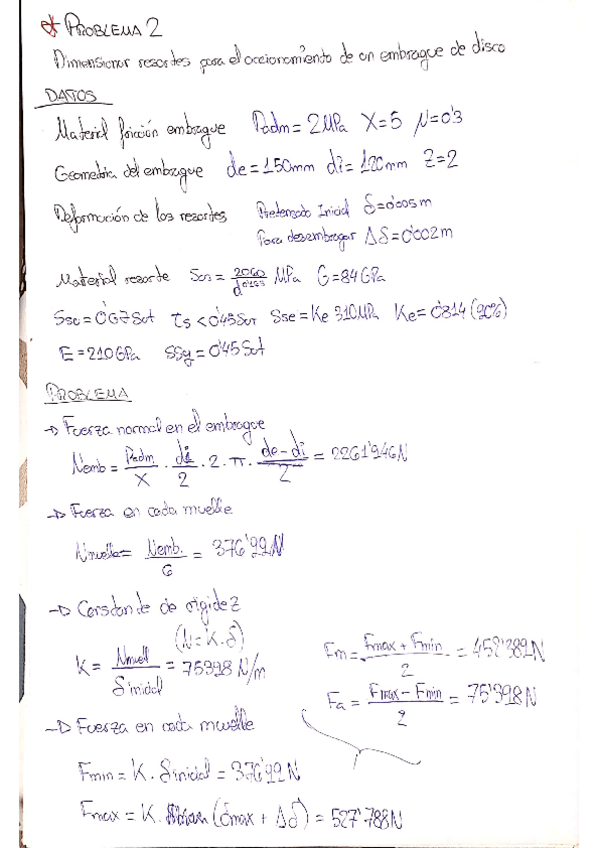 * PROBLEMA 2
Dimensionar resortes para el accionamiento de un embrague de disco
DATOS
Material fricción embrague Padm = 2MPa X=5 μ=0'3
Geometria del embrague de=150mm di=120mm Z=2
Deformación de los resortes Pretensado Inicial δ=0'005m
Para desembragar Δδ=0'002m
Material resorte MPa G=84GPa
Ssu=0'67Sut τs<0'45Sut Sse=Ke 310MPa Ke=0'814 (90%)
E=210GPa Ssy=0'45Sut
PROBLEMA
→ Fuerza normal en el embrague
Nemb = Padm/X · di/2 · 2 · π · (de-di)/2 = 2261'946N
→ Fuerza en cada muelle
Nmuelle = Nemb./6 = 376'99N
→ Constante de rigidez
(N=K.δ)
K = Nmuell/δinicial = 75398 N/m
Fm = (Fmax + Fmin)/2 = 452'389N
Fa = (Fmax - Fmin)/2 = 75'398N
→ Fuerza en cada muelle
Fmin = K · δinicial = 376'99N
Fmax = K · (δmax + Δδ) = 527'788N